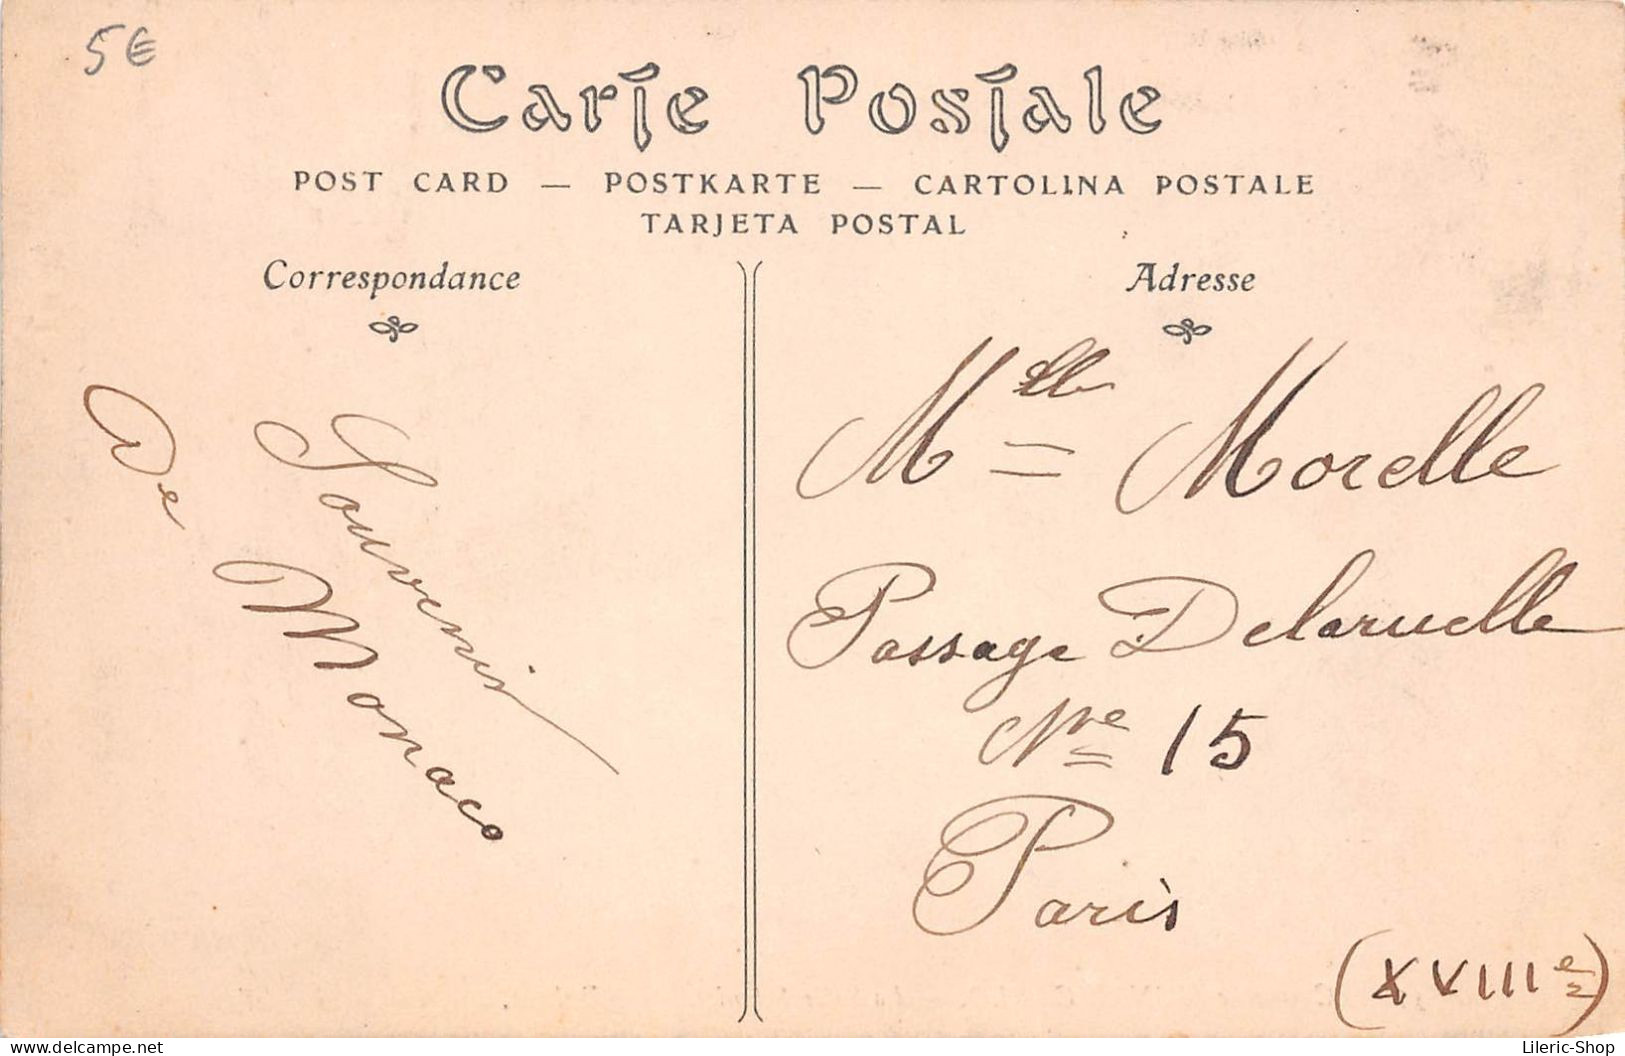 5€
Carte Postale
POST CARD — POSTKARTE — CARTOLINA POSTALE
TARJETA POSTAL
Correspondance
Souvenir
De Monaco
Adresse
Mlle Morelle
Passage Delaruelle
Nre 15
Paris
(XVIIIe)
www.delcampe.net
Lileric-Shop